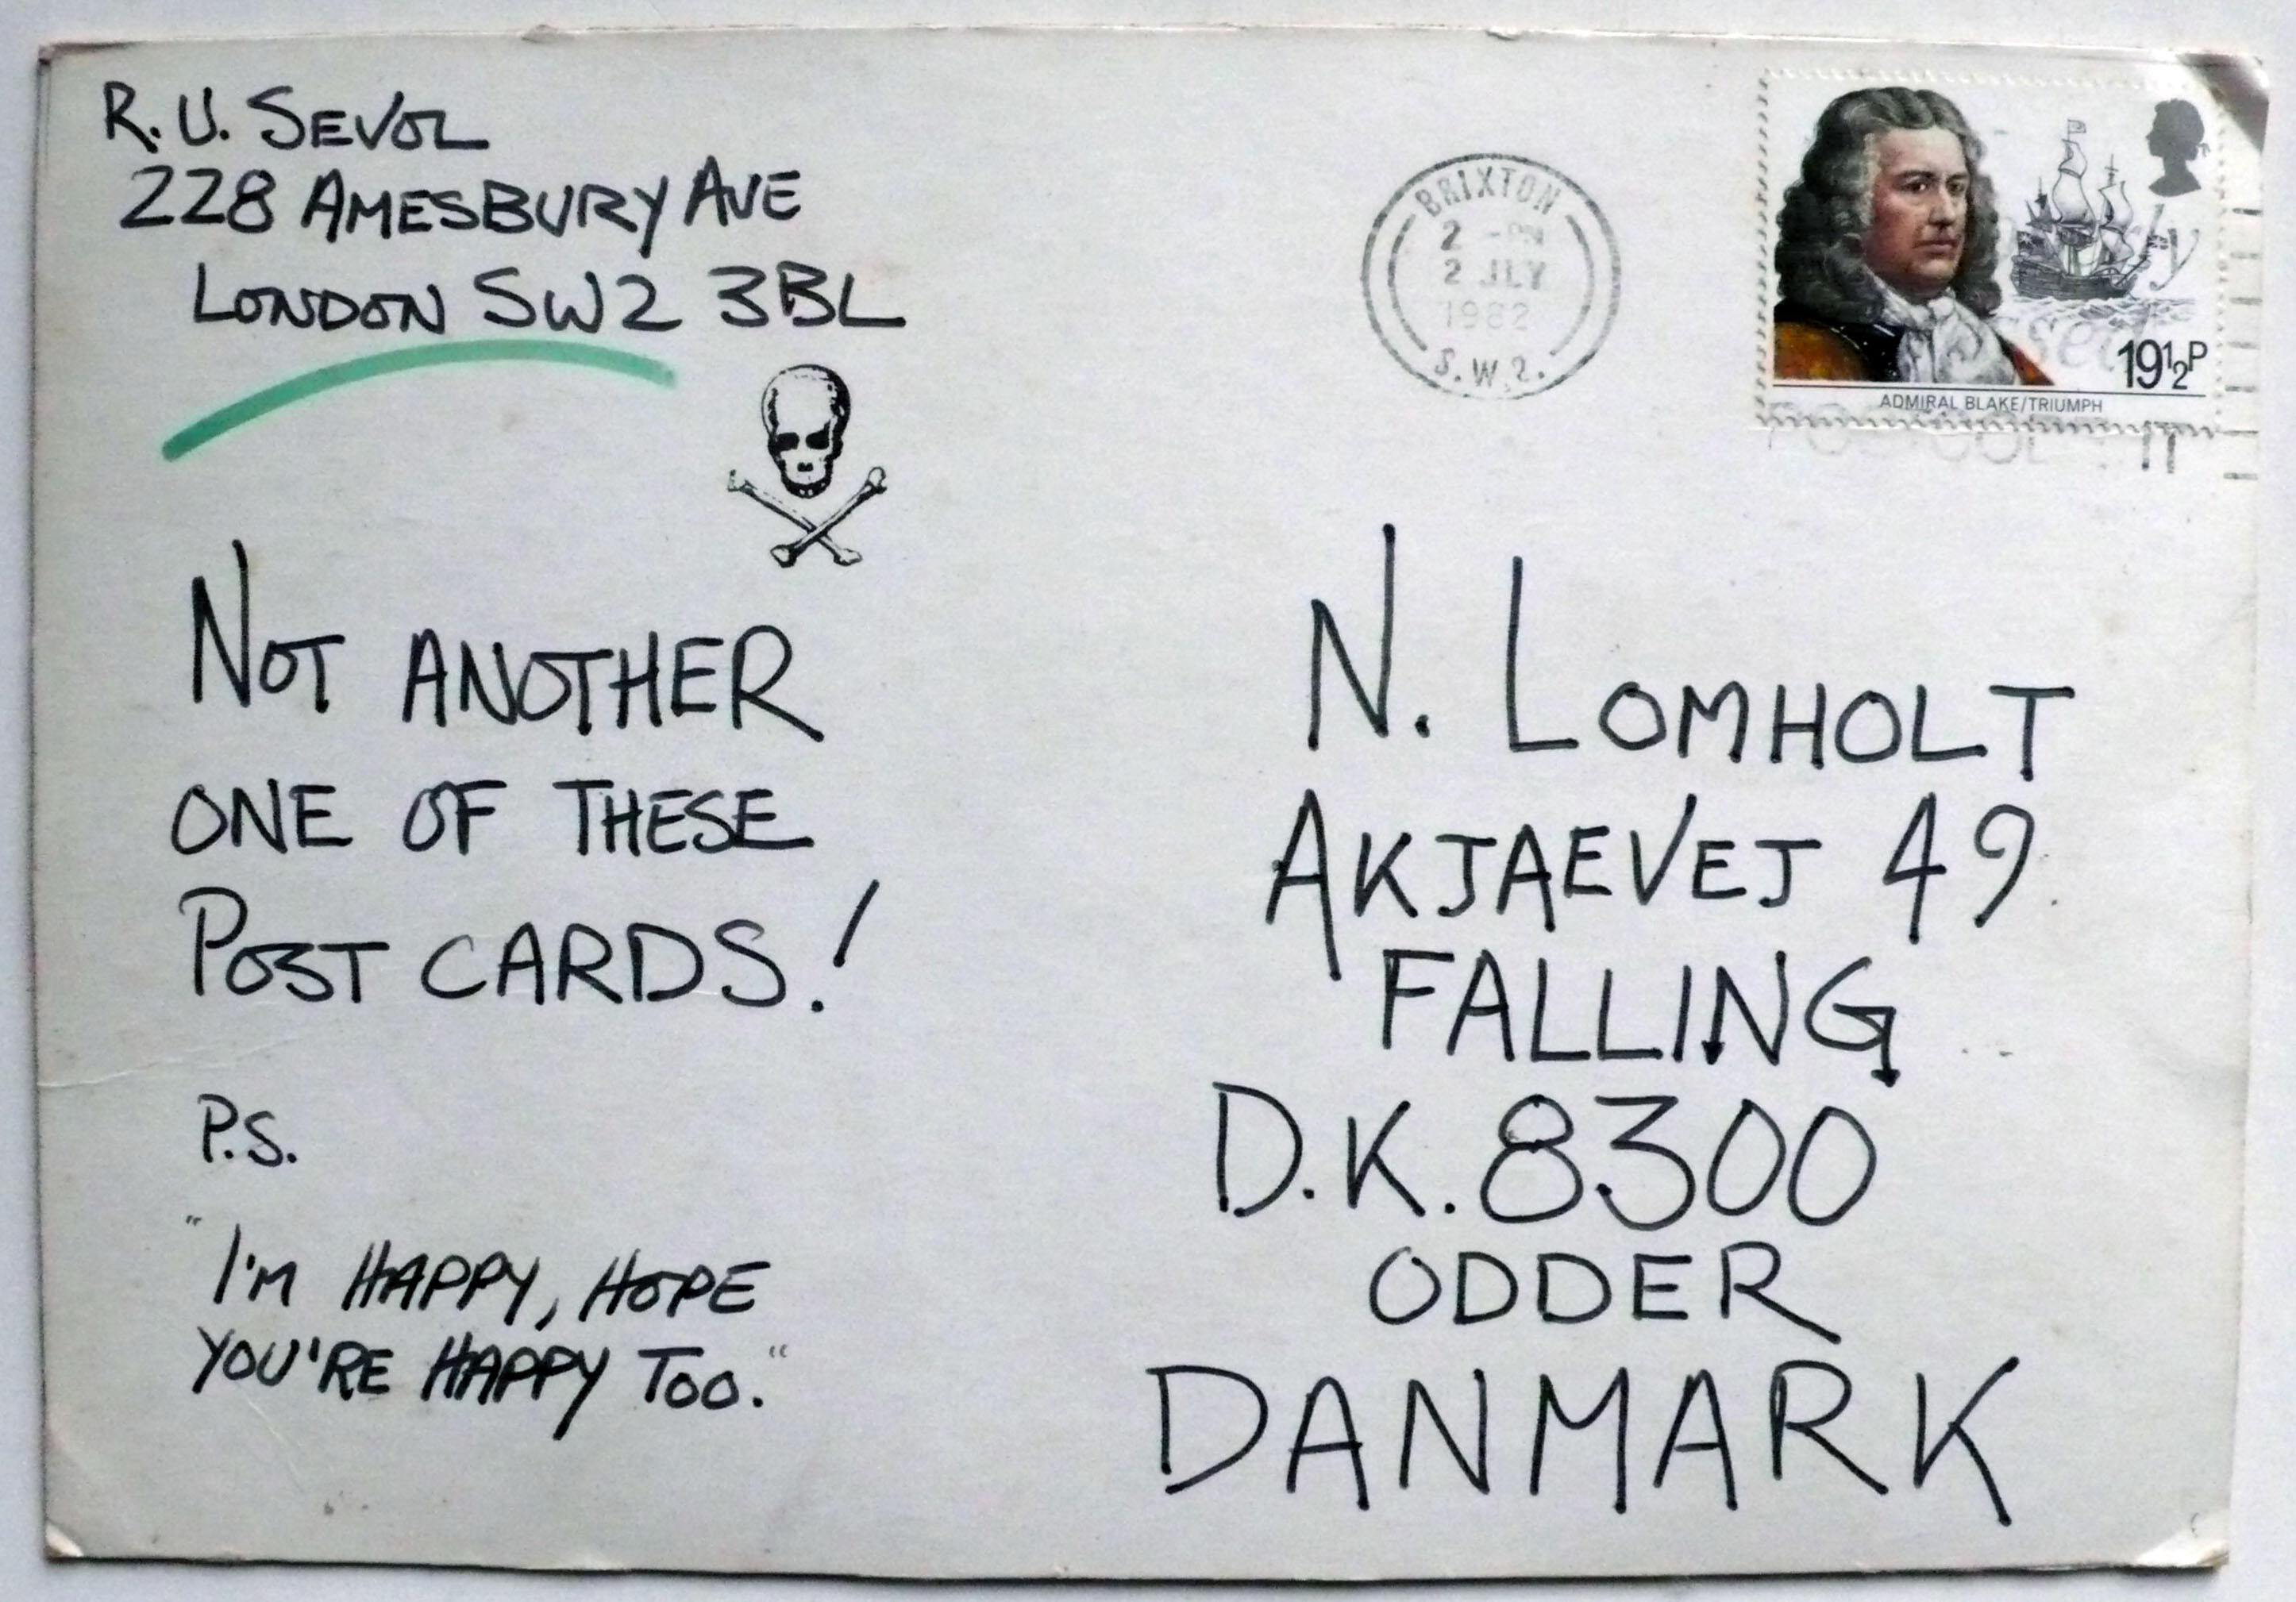 R. U. SEVOL
228 AMESBURY AVE
LONDON SW2 3BL
NOT ANOTHER
ONE OF THESE
POST CARDS!
P.S.
"I'M HAPPY, HOPE
YOU'RE HAPPY TOO."
BRIXTON
2 - PM
2 JLY
1982
S.W.2.
19½P
ADMIRAL BLAKE/TRIUMPH
N. LOMHOLT
AKJAEVEJ 49
FALLING
D.K. 8300
ODDER
DANMARK